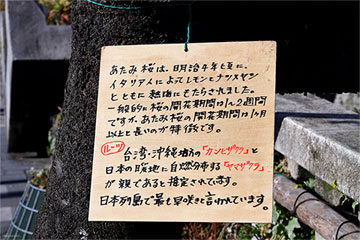 あたみ桜は、明治4年頃に、
イタリア人によってレモンとナツメヤシ
とともに熱海にもたらされました。
一般的に桜の開花期間は1〜2週間
ですが、あたみ桜の開花期間は1ヶ月
以上と長いのが特徴です。
ルーツ 台湾・沖縄地方の「カンヒザクラ」と
日本の暖地に自然分布する「ヤマザクラ」
が親であると推定されています。
日本列島で最も早咲きと言われています。